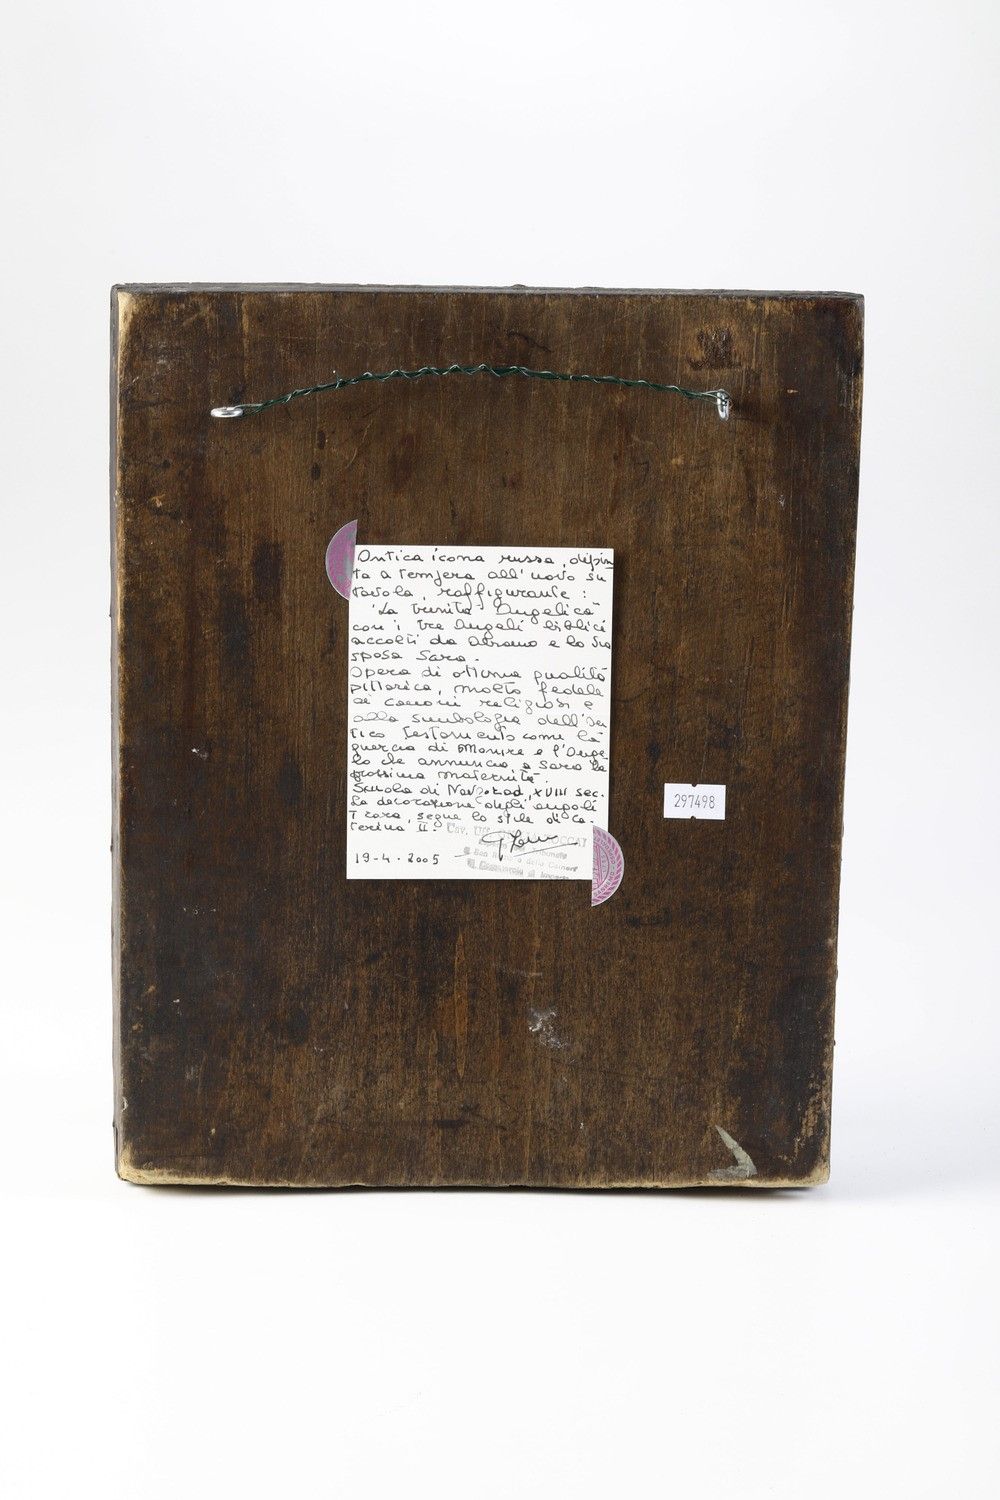 Antica icona russa, dipin-
ta a tempera all'uovo su
tavola, raffigurante:
"La trinità Angelica"
con i tre Angeli biblici
accolti da Abramo e la sua
sposa Sara.
Opera di ottima qualità
pittorica, molto fedele
ai canoni religiosi e
alla simbologia dell'An-
tico Testamento come la
quercia di Mamre e l'Ange-
lo che annuncia a Sara la
prossima maternità.
Scuola di Novgorod, XVIII sec.
La decorazione degli angoli
Trara, segue lo stile di Ca-
terina II.
19-4-2005
297498